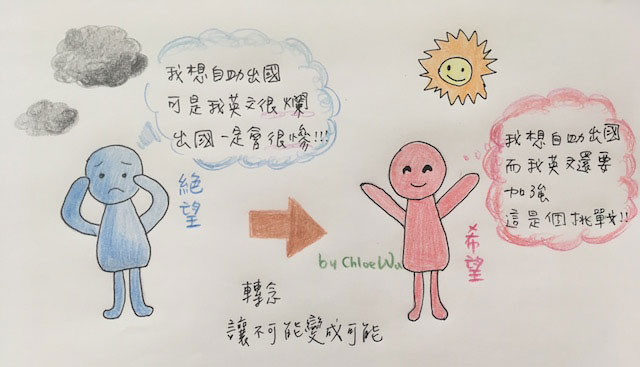 我想自助出國
可是我英文很爛
出國一定會很慘!!!
絕望
我想自助出國
而我英文還要
加強
這是個挑戰!!
希望
by ChloeWu
轉念
讓不可能變成可能